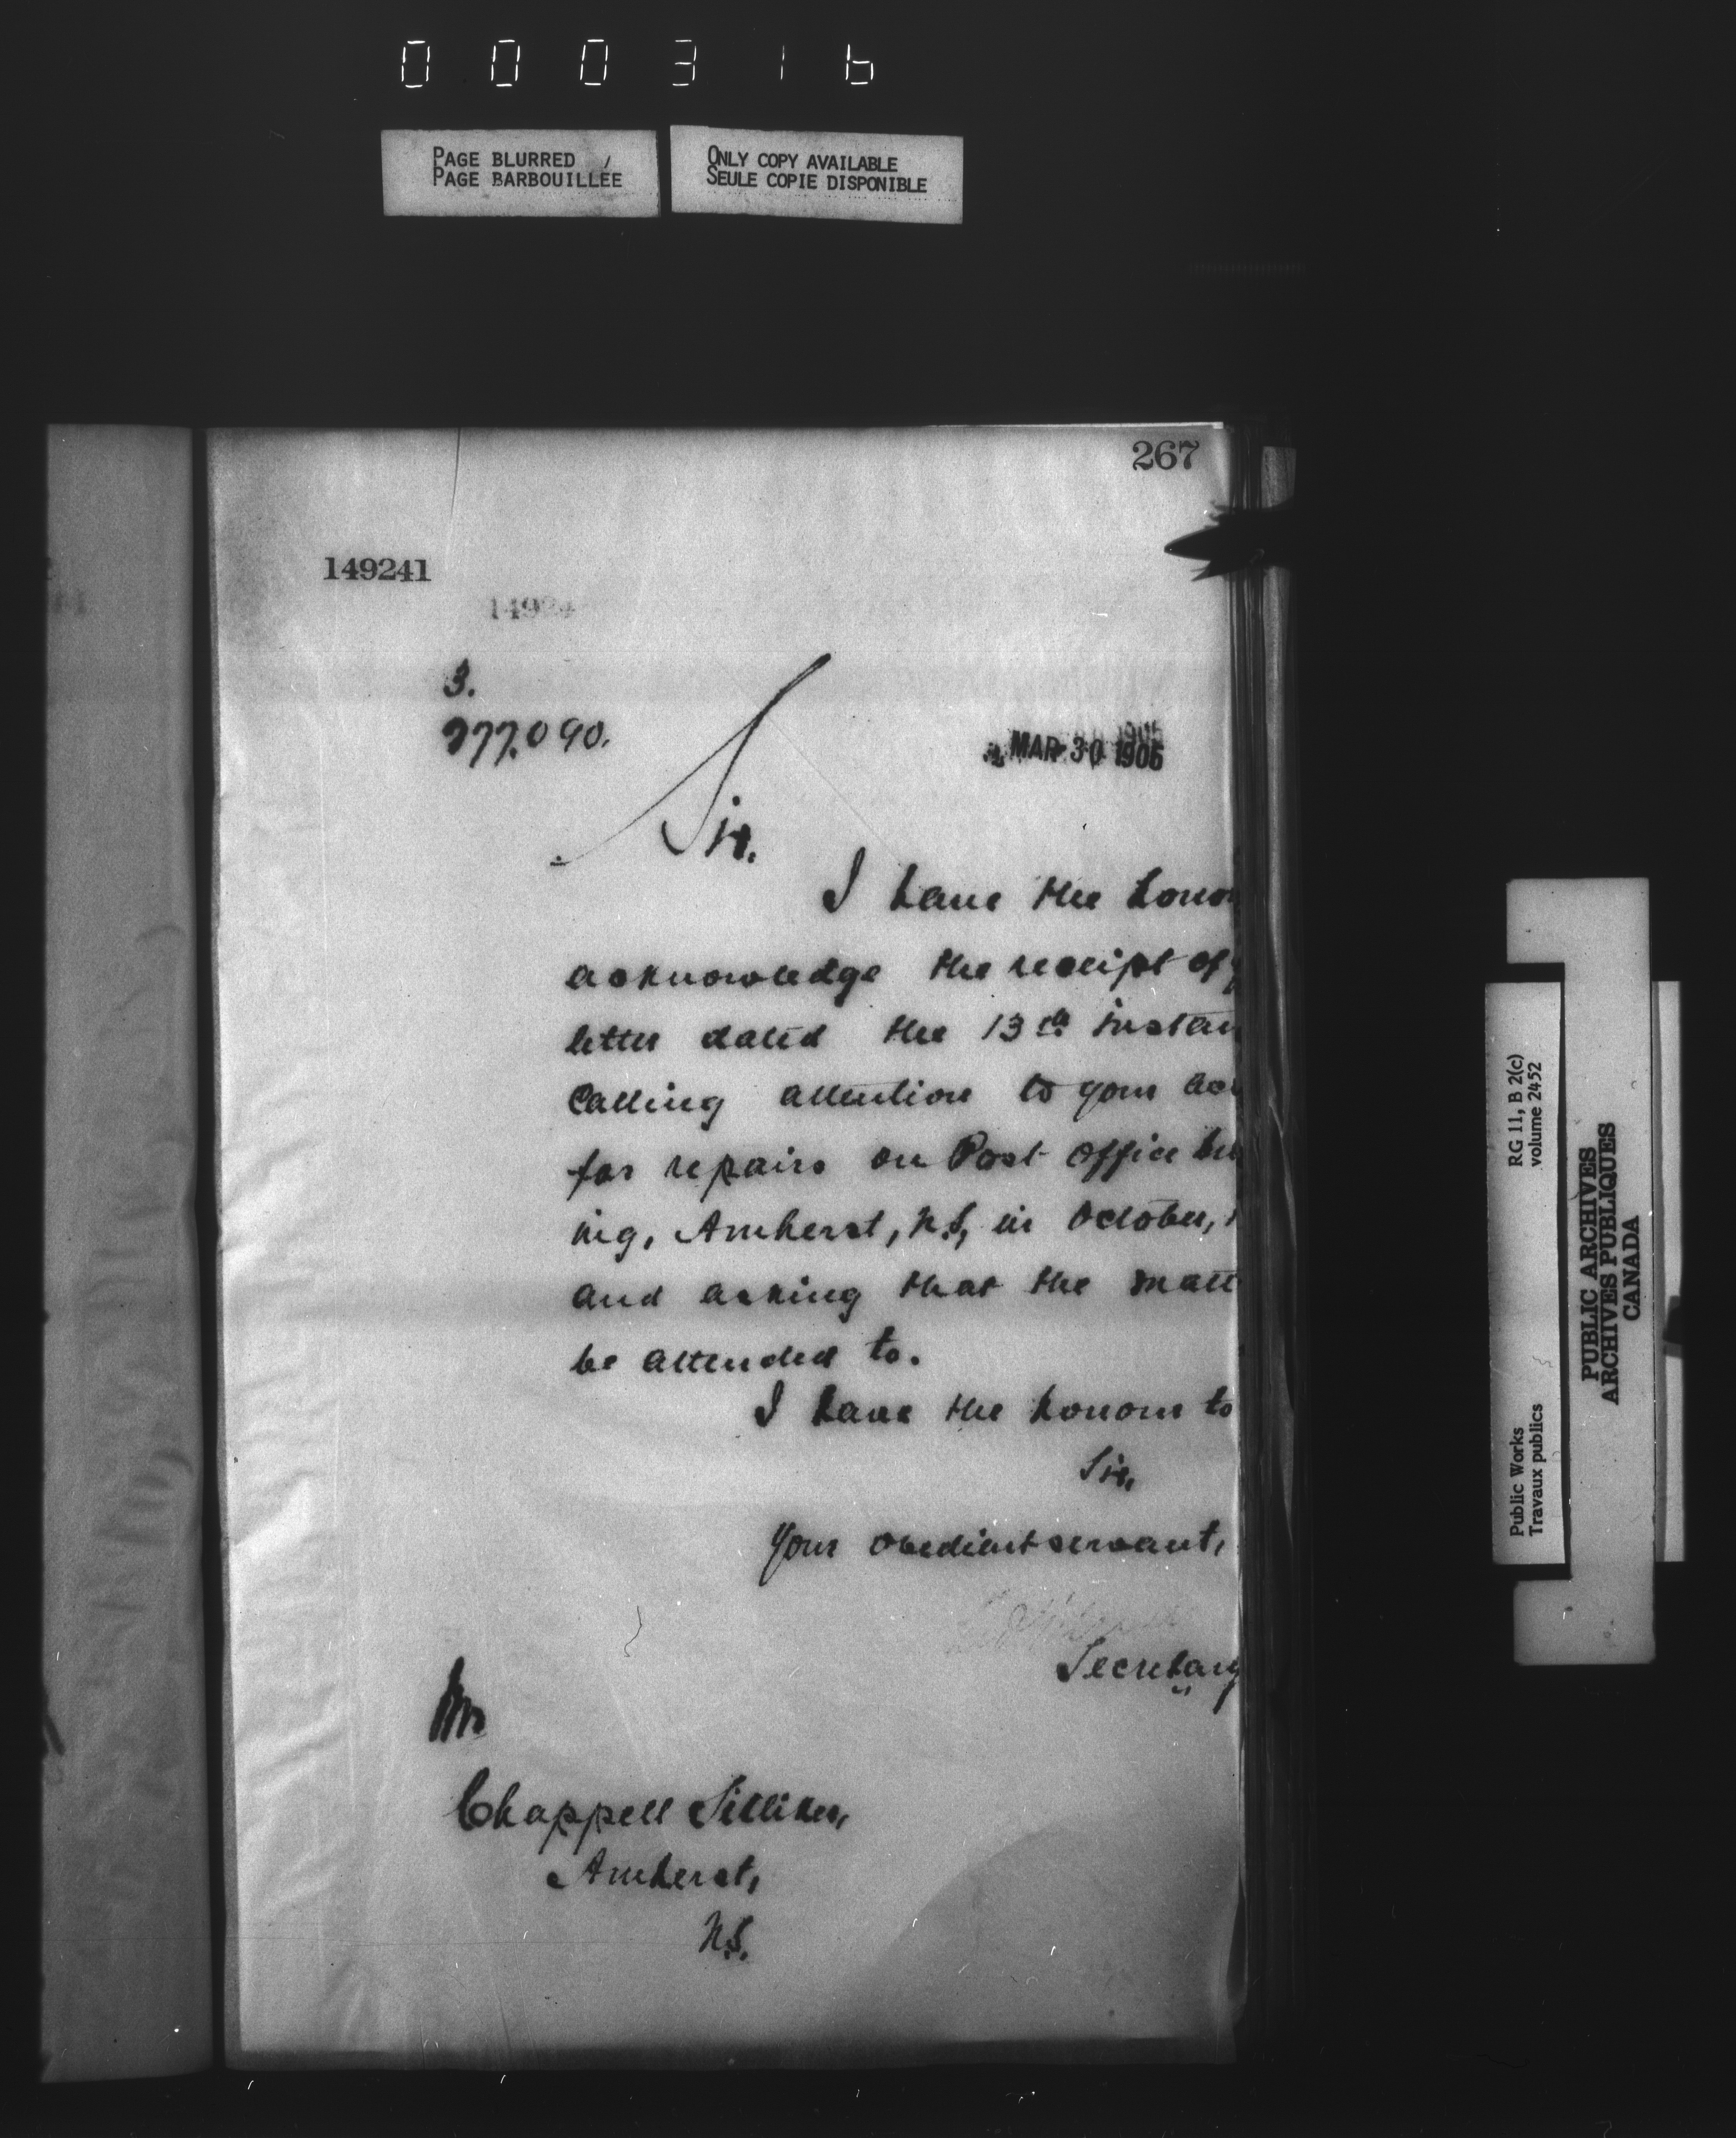 000316
PAGE BLURRED
PAGE BARBOUILLÉE
ONLY COPY AVAILABLE
SEULE COPIE DISPONIBLE
267
149241
1492
3.
277.090.
MAR 30 1905
Sir.
I have the honou
acknowledge the receipt of y
letter dated the 13th instan
calling attention to your acc
for repairs on Post Office bu
ing, Amherst, N.S, in October, 1
and asking that the matt
be attended to.
I have the honour to
Sir,
Your obedient servant,
Secretary
Mr
Chappell Silliker,
Amherst,
N.S.
Public Works
Travaux publics
RG 11, B 2(c)
volume 2452
PUBLIC ARCHIVES
ARCHIVES PUBLIQUES
CANADA